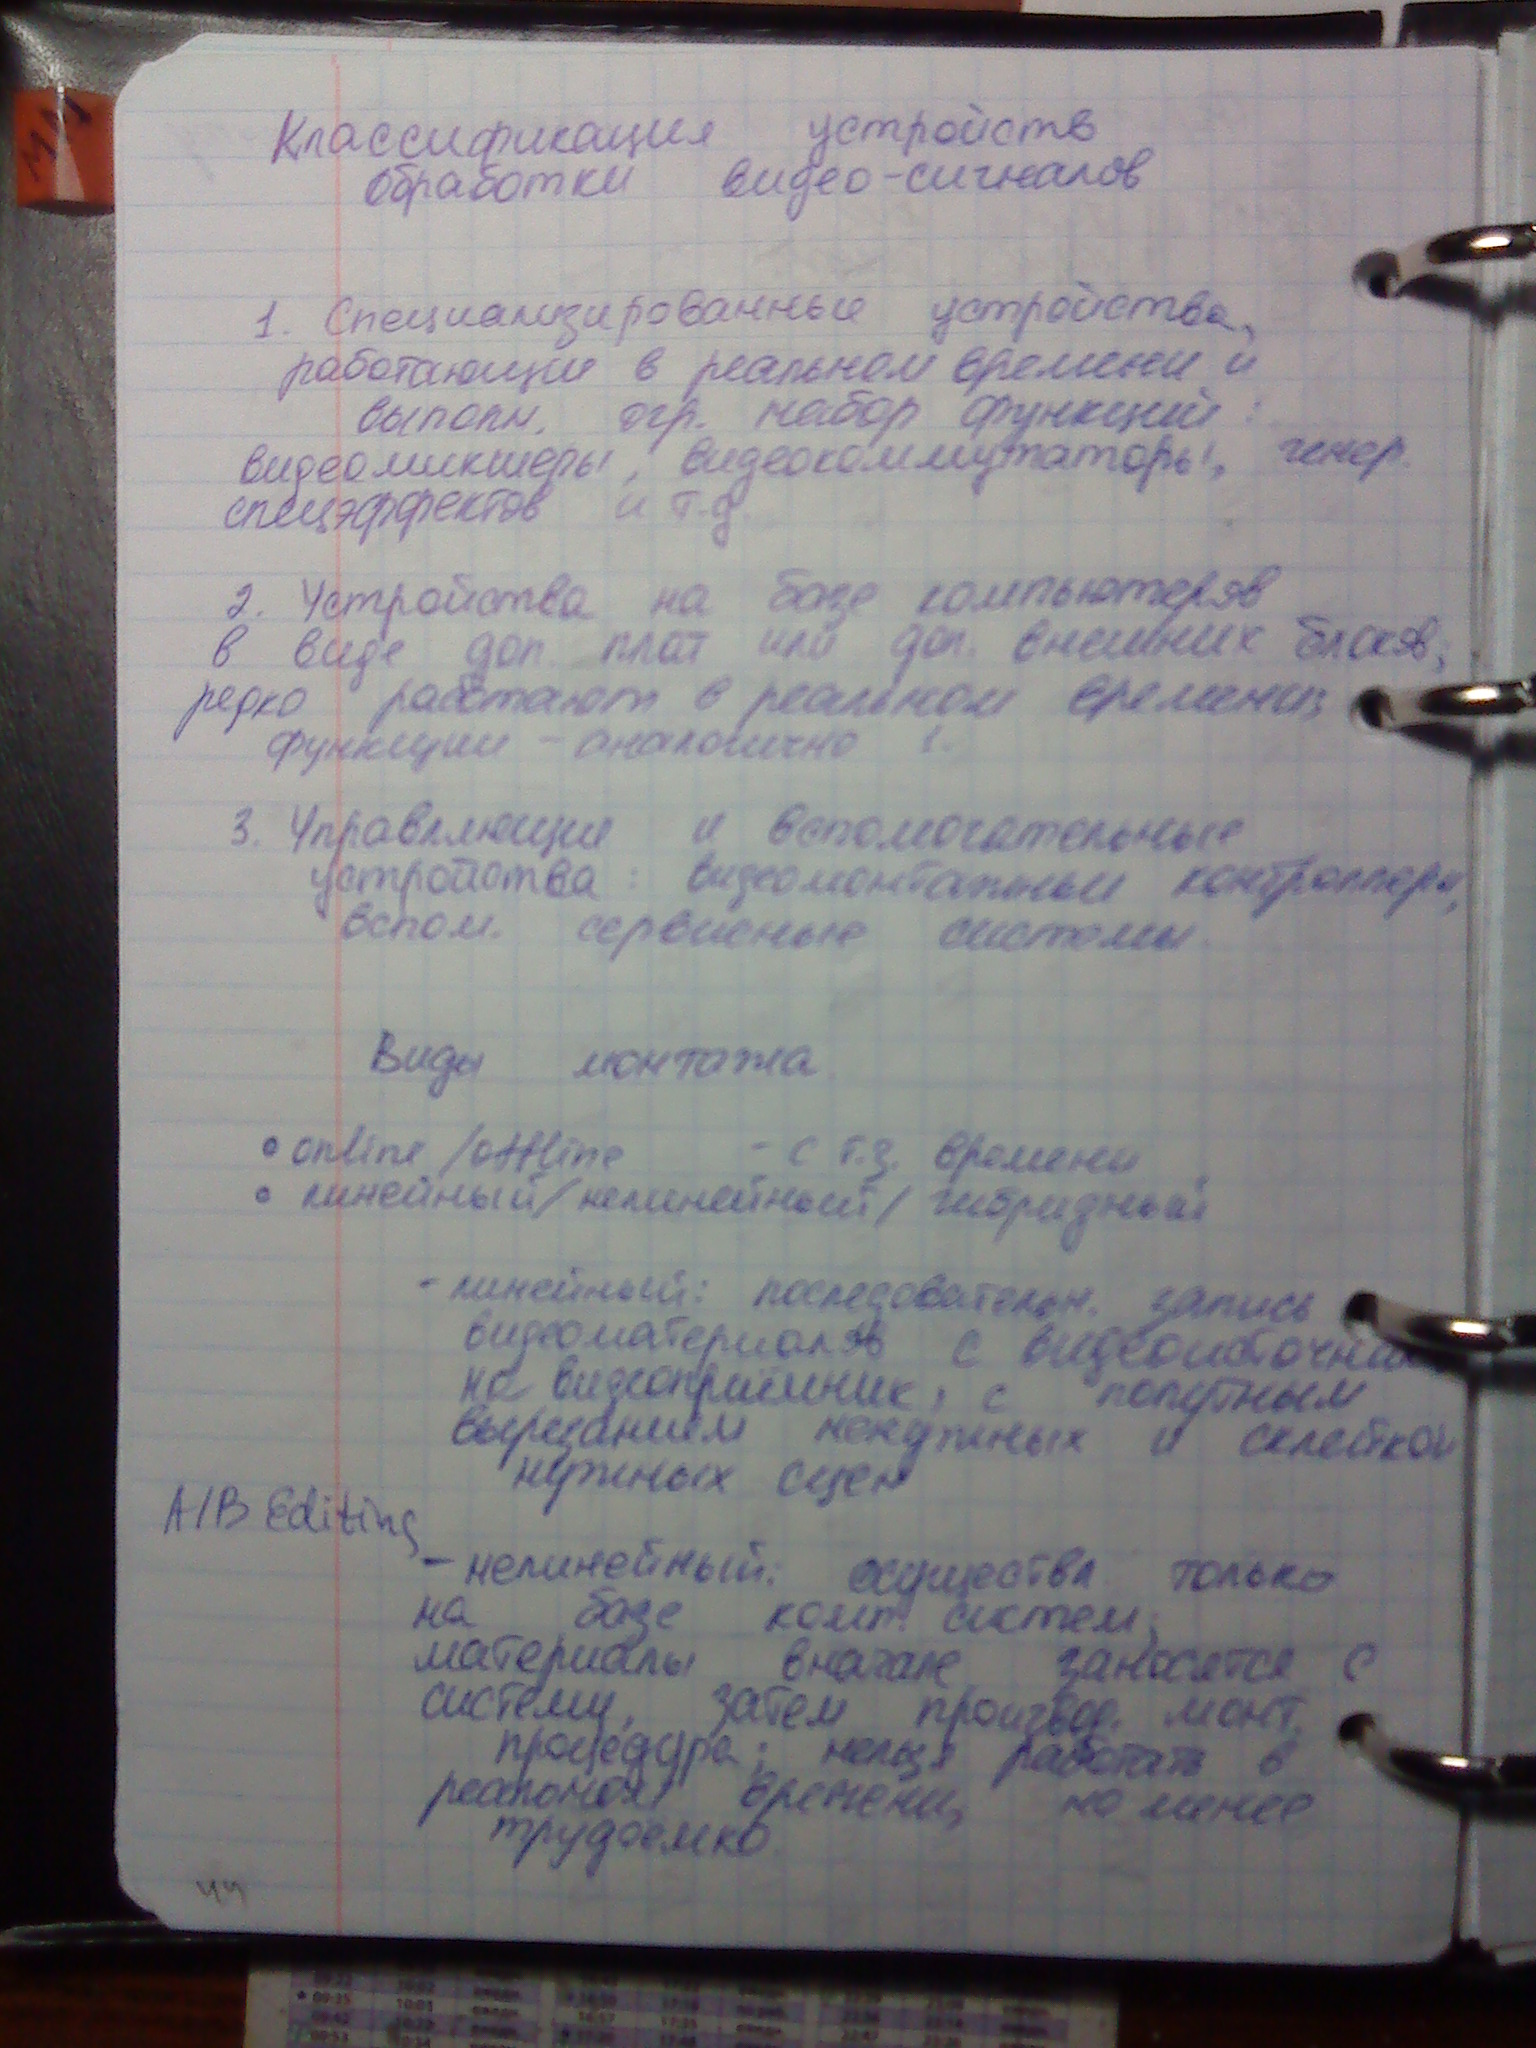 ММ
Классификация устройств
обработки видео-сигналов
1. Специализированные устройства,
работающие в реальном времени и
выполн. огр. набор функций:
видеомикшеры, видеокоммутаторы, генер.
спецэффектов и т.д.
2. Устройства на базе компьютеров
в виде доп. плат или доп. внешних блоков;
редко работают в реальном времени;
функции - аналогично 1.
3. Управляющие и вспомогательные
устройства: видеомонтажные контроллеры,
вспом. сервисные системы.
Виды монтажа
• online/offline - с т.з. времени
• линейный/нелинейный/гибридный
- линейный: последовательн. запись
видеоматериалов с
на видеоприемник, с попутным
вырезанием ненужных и склейкой
нужных сцен
A/B Editing
- нелинейный: осуществл. только
на базе комп. систем;
материалы вначале заносятся с
систему, затем производ. монт.
процедура; нельзя работать в
реальном времени, но менее
трудоемко.
44
09:35 10:01
09:53